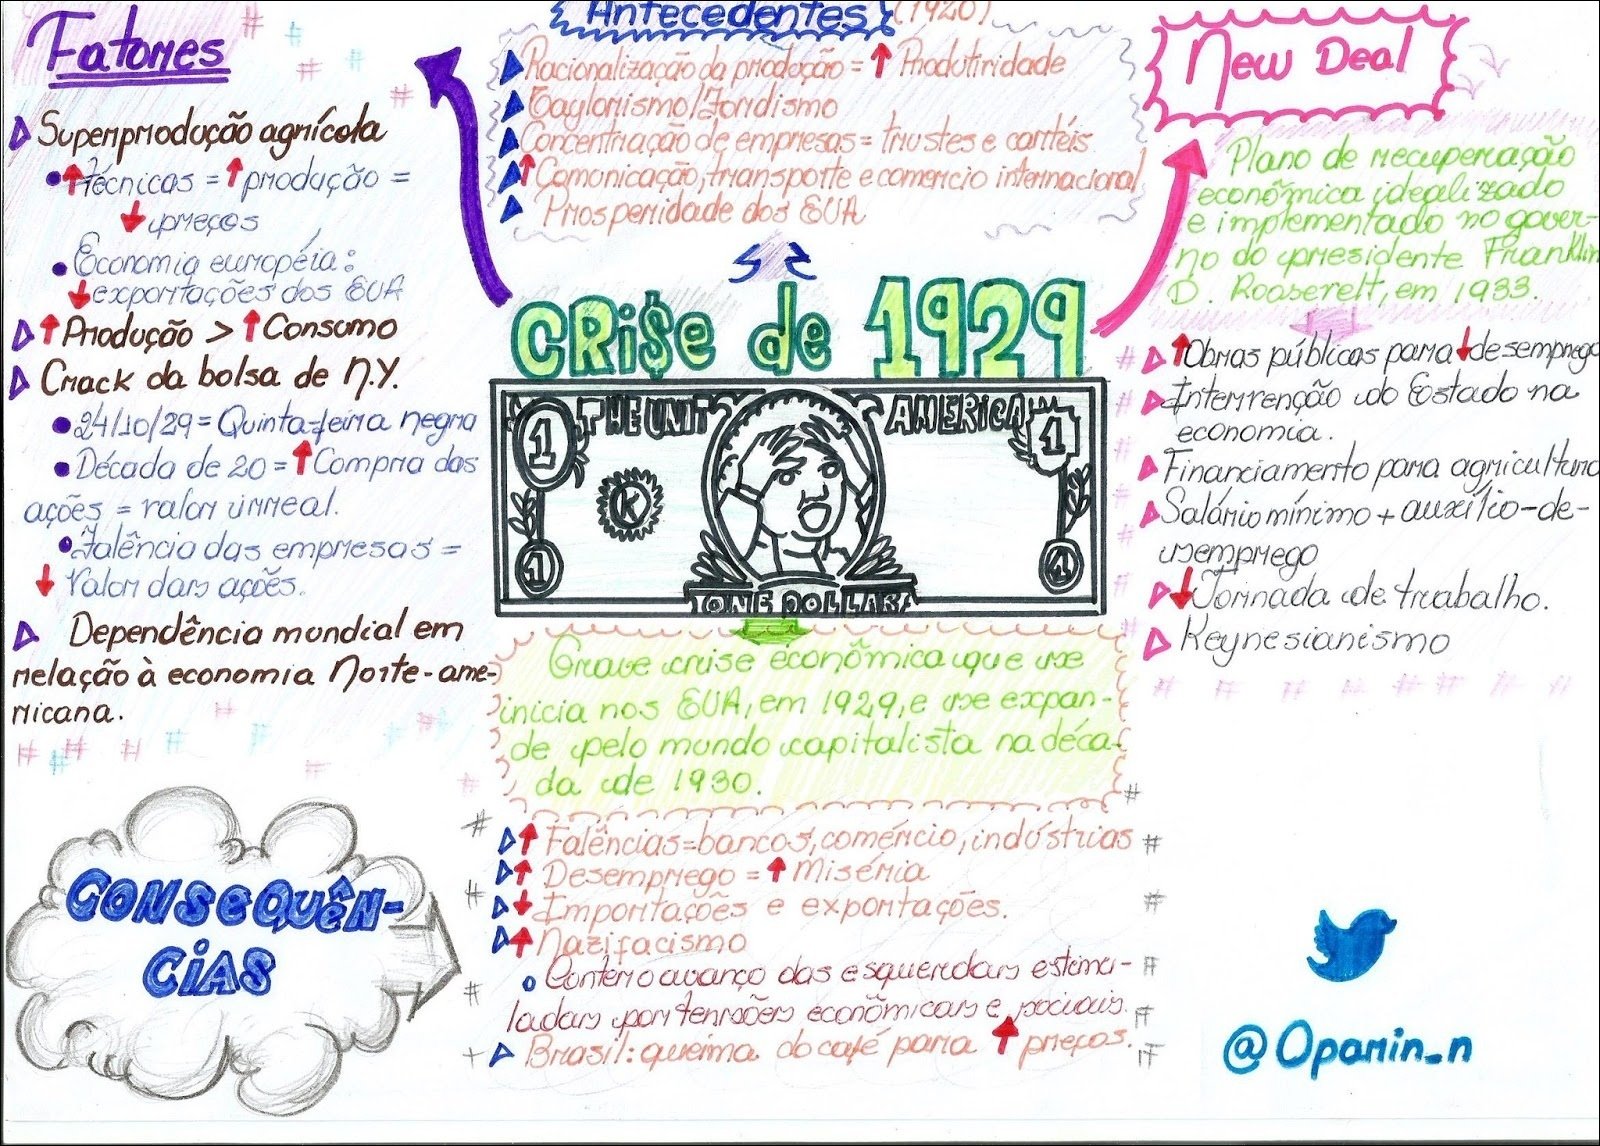 Fatores
▷ Superprodução agrícola
• ↑Técnicas = ↑produção =
↓preços
• Economia européia:
↓exportações dos EUA
▷ ↑Produção > ↑Consumo
▷ Crack da bolsa de N.Y.
• 24/10/29 = Quinta-feira negra
• Década de 20 = ↑Compra das
ações = valor irreal.
• Falência das empresas =
↓ Valor das ações.
▷ Dependência mundial em
relação à economia Norte-ame-
ricana.
Antecedentes (1920)
▶ Racionalização da produção = ↑ Produtividade
▶ Taylorismo/Fordismo
▶ Concentração de empresas = trustes e cartéis
▶ ↑Comunicação, transporte e comercio internacional
▶ Prosperidade dos EUA
CRi$e de 1929
1 THE UNIT AMERICA 1
K
1 ONE DOLLAR 1
Grave crise econômica que se
inicia nos EUA, em 1929, e se expan-
de pelo mundo capitalista na déca-
da de 1930.
New Deal
Plano de recuperação
econômica idealizado
e implementado no gover-
no do presidente Franklin
D. Rooservelt, em 1933.
▷ ↑Obras públicas para ↓desemprego
▷ Intervenção do Estado na
economia.
▷ Financiamento para agricultura
▷ Salário mínimo + auxílio-de-
semprego
▷ ↓Jornada de trabalho.
▷ Keynesianismo
CONSEQUÊN-
CIAS
▷ ↑ Falências = bancos, comércio, indústrias
▷ ↑ Desemprego = ↑ Miséria
▷ ↓ Importações e exportações.
▷ ↑ Nazifacismo
o Conter o avanço das esquerdas estimu-
ladas por tensões econômicas e sociais.
▷ Brasil: queima do café para ↑ preços.
@Oparin_n